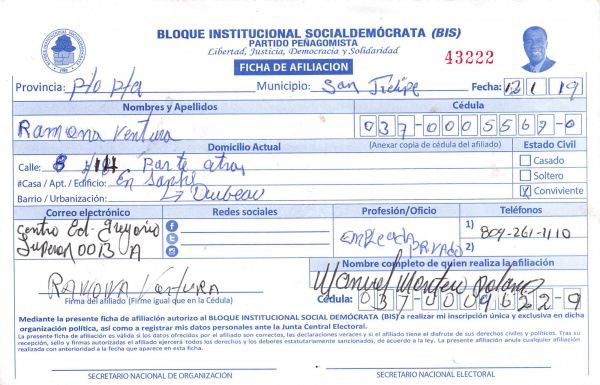 BLOQUE INSTITUCIONAL SOCIALDEMÓCRATA (BIS)
PARTIDO PEÑAGOMISTA
Libertad, Justicia, Democracia y Solidaridad
43222
FICHA DE AFILIACION
Provincia: p/o p/a Municipio: San Felipe Fecha: 12/1/19
Nombres y Apellidos Cédula
Ramona Ventura 037-0005567-0
Domicilio Actual (Anexar copia de cédula del afiliado) Estado Civil
Calle: 8 # 14 parte atra,
Casado
#Casa / Apt. / Edificio: En
Soltero
Barrio / Urbanización:
X Conviviente
Correo electrónico Redes sociales Profesión/Oficio Teléfonos
Centro Ed. Gregorio
Luperon 0013 A
Empleada Privado
1) 809-261-1110
2)
Nombre completo de quien realiza la afiliación
Ramona Ventura
Manuel
Firma del afiliado (Firme igual que en la Cédula)
Cédula: 037-0009622-9
Mediante la presente ficha de afiliación autorizo al BLOQUE INSTITUCIONAL SOCIAL DEMÓCRATA (BIS) a realizar mi inscripción única y exclusiva en dicha
organización política, así como a registrar mis datos personales ante la Junta Central Electoral.
La presente ficha de afiliación es válida si los datos ofrecidos por el afiliado son correctos, las declaraciones veraces y si el afiliado tiene el disfrute de sus derechos civiles y políticos. Tras su
recepción, sello y firmas autorizadas el afiliado ejercerá todos los derechos y los deberes estatutariamente sancionados, de acuerdo a la ley. La presente afiliación anula cualquier afiliación
realizada con anterioridad a la fecha que aparece en esta ficha.
SECRETARIO NACIONAL DE ORGANIZACIÓN SECRETARIO NACIONAL ELECTORAL